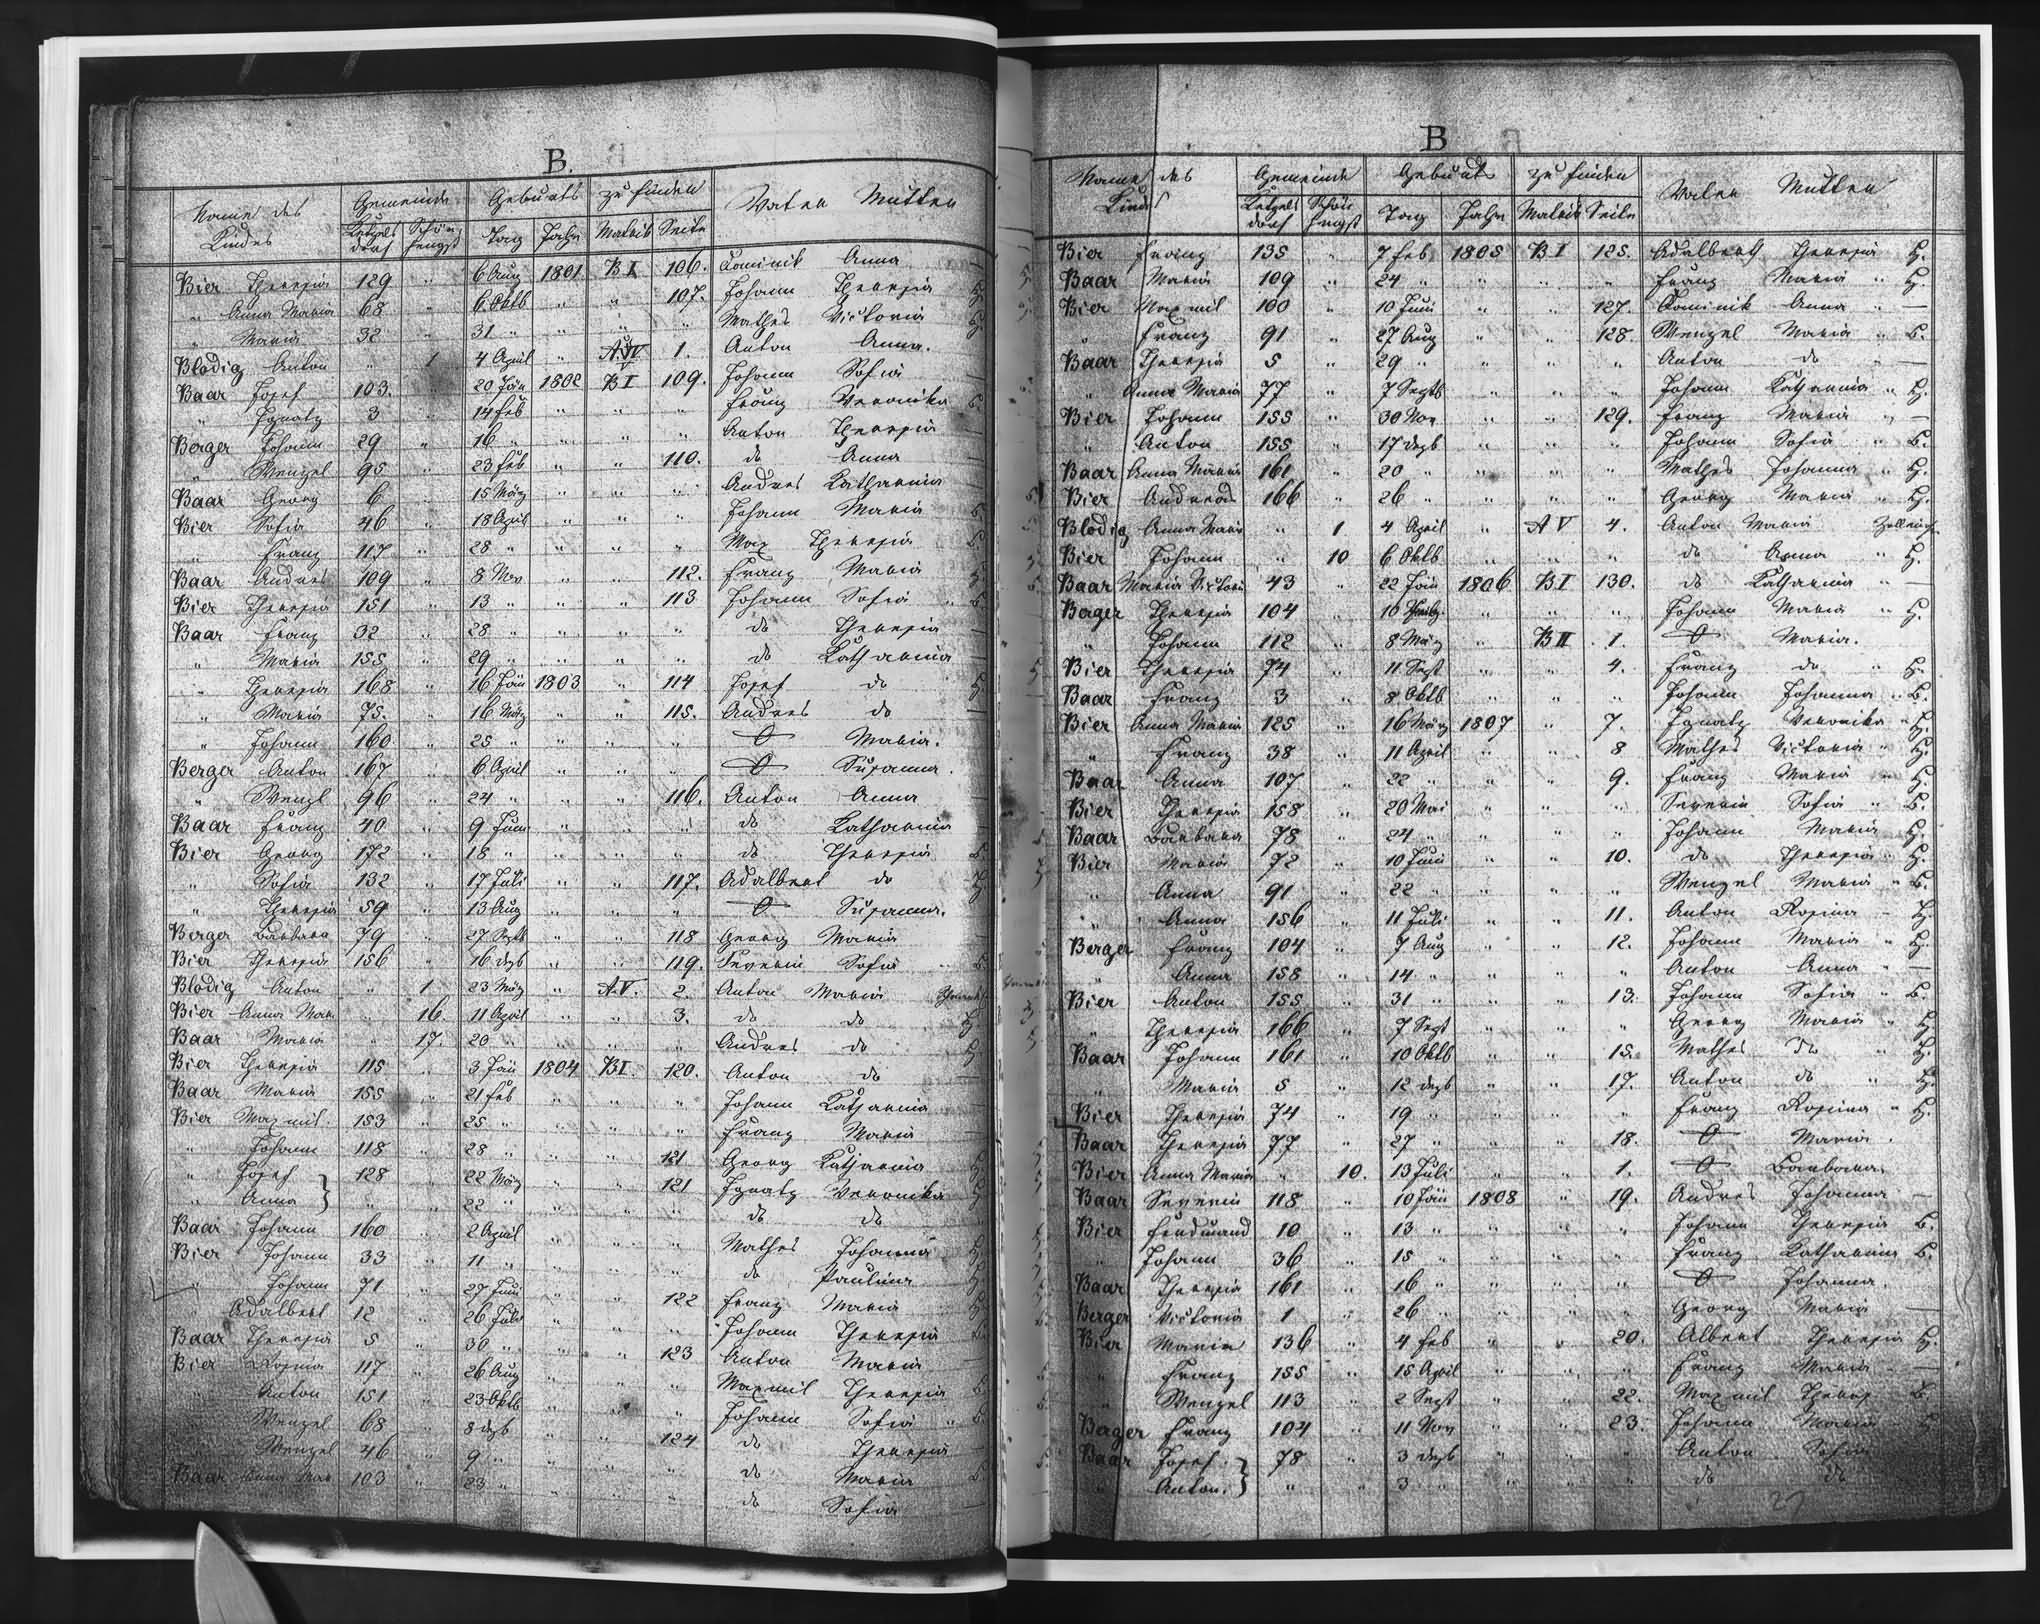 B.
Name des Kindes Gemeinde Geburts zu finden Vater Mutter
Ketzelsdorf Schönhengst Tag Jahr Matrik Seite
Bier Theresia 129 " 6 Aug 1801 B I 106. Dominik Anna —
" Anna Maria 68 " 6 Oktb " " 107. Johann Theresia H.
" Maria 32 " 31 " " " " Mathes Victoria H.
Blodig Anton " 1 4 April " A V 1. Anton Anna.
Baar Josef 103. " 20 Jän 1802 B I 109. Johann Sofia —
" Ignatz 3 " 14 Feb " " " Franz Veronika B.
Berger Johann 29 " 16 " " " " Anton Theresia —
" Wenzel 95 " 23 Feb " " 110. do Anna —
Baar Georg 6 " 15 März " " " Andres Katharina —
Bier Sofia 46 " 18 April " " " Johann Maria B
" Franz 117 " 28 " " " " Max Theresia B
Baar Andres 109 " 8 Nov " " 112. Franz Maria H
Bier Theresia 151 " 13 " " " 113 Johann Sofia " B
Baar Franz 32 " 28 " " " " do Theresia —
" Maria 155 " 29 " " " " do Katharina —
" Theresia 168 " 16 Jän 1803 " 114 Josef do H
" Maria 75. " 16 März " " 115. Andres do —
" Johann 160 " 25 " " " " O Maria.
Berger Anton 167 " 6 April " " " O Susanna.
" Wenzl 96 " 24 " " " 116. Anton Anna
Baar Franz 40 " 9 Juni " " " do Katharina —
Bier Georg 172 " 18 " " " " do Theresia B.
" Sofia 132 " 17 Juli " " 117. Adalbert do H
" Theresia 59 " 13 Aug " " " O Susanna.
Berger Barbara 79 " 27 Septb " " 118 Georg Maria
Bier Theresia 156 " 16 dezb " " 119. Severin Sofia B.
Blodig Anton " 1 23 März " A.V. 2. Anton Maria
Bier Anna Mar. " 16. 11 April " " 3. do do H
Baar Maria " 17. 20 " " " " Andres do H
Bier Theresia 115 " 3 Jän 1804 B I. 120. Anton do —
Baar Maria 155 " 21 Feb " " " Johann Katharina —
Bier Maxmil. 153 " 25 " " " " Franz Maria —
" Johann 118 " 28 " " " 121 Georg Katharina H
" Josef } 128 " 22 März " " 121 Ignatz Veronika H
" Anna } " " 22 " " " " do do
Baar Johann 160 " 2 April " " " Mathes Johanna H
Bier Johann 33 " 11 " " " " do Paulina H
" Johann 71 " 27 Juni " " 122 Franz Maria H
" Adalbert 12 " 26 Juli " " " Johann Theresia B.
Baar Theresia 5 " 30 " " " 123 Anton Maria —
Bier Rosina 117 " 26 Aug " " " Maxmil Theresia B
" Anton 151 " 23 Oktb " " " Johann Sofia " B.
" Wenzel 68 " 8 dezb " " 124 do Theresia —
" Wenzel 46 " 9 " " " " do Maria B.
Baar Anna Mar 103 " 23 " " " " do Sofia —
B
Name des Kindes Gemeinde Geburts zu finden Vater Mutter
Ketzelsdorf Schönhengst Tag Jahr Matrik Seite
Bier Franz 135 " 7 Feb 1805 B I 125. Adalbert Theresia H.
Baar Maria 109 " 24 " " " " Franz Maria " H.
Bier Maxmil 100 " 10 Juni " " 127. Dominik Anna " —
" Franz 91 " 27 Aug " " 128. Wenzel Maria " B.
Baar Theresia 5 " 29 " " " " Anton do " —
" Anna Maria 77 " 7 Septb " " " Johann Katharina " H.
Bier Johann 155 " 30 Nov " " 129. Franz Maria " —
" Anton 155 " 17 dezb " " " Johann Sofia " B.
Baar Anna Maria 161 " 20 " " " " Mathes Johanna " H.
Bier Andreas 166 " 26 " " " " Georg Maria " H.
Blodig Anna Maria " 1 4 April " A V 4. Anton Maria
Bier Johann " 10 6 Oktb " " " do Anna " H.
Baar Maria Victoria 43 " 22 Jän 1806 B I 130. do Katharina " —
Berger Theresia 104 " 10 " " " Johann Maria " H.
" Johann 112 " 8 März " B II 1. O Maria.
Bier Theresia 74 " 11 Sept " " 4. Franz do " H.
Baar Franz 3 " 8 Oktb " " " Johann Johanna " B.
Bier Anna Maria 125 " 16 März 1807 " 7. Ignatz Veronika " H.
" Franz 38 " 11 April " " 8 Mathes Victoria " H.
Baar Anna 107 " 22 " " " 9. Franz Maria " H.
Bier Theresia 158 " 20 Mai " " " Severin Sofia " B.
Baar Barbara 78 " 24 " " " " Johann Maria H.
Bier Maria 72 " 10 Juni " " 10. do Theresia " H.
" Anna 91 " 22 " " " " Wenzel Maria " B.
" Anna 156 " 11 Juli " " 11. Anton Rosina " H.
Berger Franz 104 " 7 Aug " " 12. Johann Maria " H.
" Anna 158 " 14 " " " " Anton Anna " —
Bier Anton 155 " 31 " " " 13. Johann Sofia " B.
" Theresia 166 " 7 Sept " " " Georg Maria " H.
Baar Johann 161 " 10 Oktb " " 15. Mathes do " H.
" Maria 5 " 12 dezb " " 17. Anton do " H.
Bier Theresia 74 " 19 " " " " Franz Rosina " H.
Baar Theresia 77 " 27 " " " 18. O Maria.
Bier Anna Maria " 10. 13 Juli " " 1. O Barbara.
Baar Severin 118 " 10 Jän 1808 " 19. Andres Johanna —
Bier Ferdinand 10 " 13 " " " " Johann Theresia B.
" Johann 36 " 15 " " " " Franz Katharina B.
Baar Theresia 161 " 16 " " " " O Johanna.
Berger Victoria 1 " 26 " " " " Georg Maria —
Bier Maria 136 " 4 Feb " " 20. Albert Theresia H.
" Franz 155 " 15 April " " " Franz Maria —
" Wenzel 113 " 2 Sept " " 22. Maxmil Theres B.
Berger Franz 104 " 11 Nov " " 23. Johann Maria
Baar Josef } 78 " 3 dezb " " " Anton Sofia
" Anton. } " " 3 " " " " do do
27